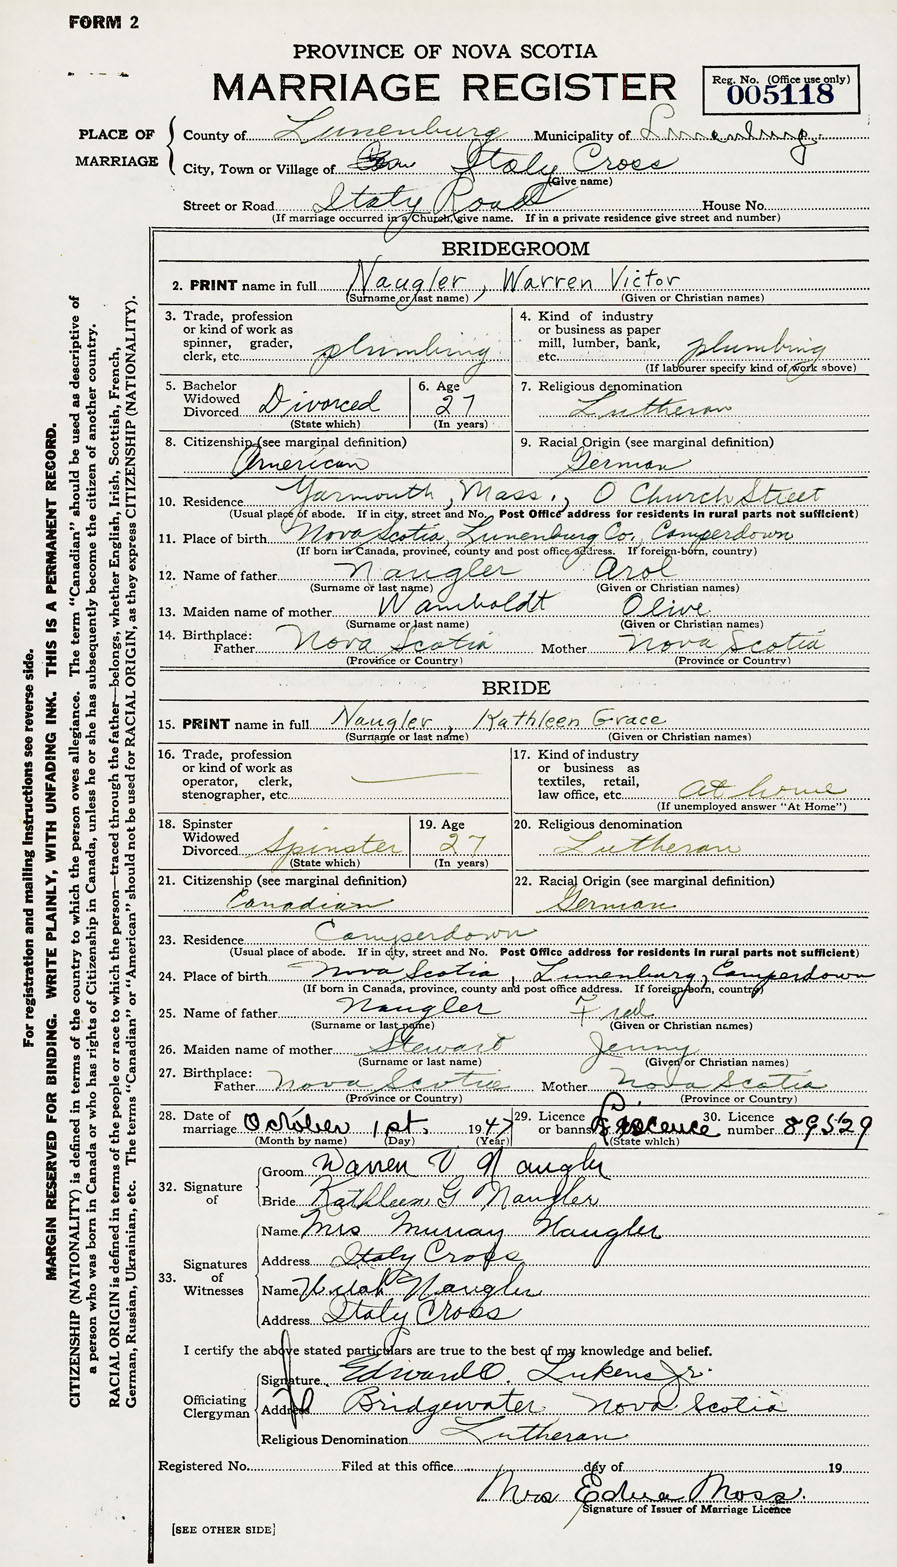 FORM 2
PROVINCE OF NOVA SCOTIA
MARRIAGE REGISTER
Reg. No. (Office use only)
005118
PLACE OF MARRIAGE
County of Lunenburg Municipality of Lunenburg
City, Town or Village of Italy Cross
(Give name)
Street or Road Italy Road House No.
(If marriage occurred in a Church, give name. If in a private residence give street and number)
BRIDEGROOM
2. PRINT name in full Naugler, Warren Victor
(Surname or last name) (Given or Christian names)
3. Trade, profession or kind of work as spinner, grader, clerk, etc. plumbing
4. Kind of industry or business as paper mill, lumber, bank, etc. plumbing
(If labourer specify kind of work above)
5. Bachelor Widowed Divorced Divorced
(State which)
6. Age 27
(In years)
7. Religious denomination Lutheran
8. Citizenship (see marginal definition) American
9. Racial Origin (see marginal definition) German
10. Residence Yarmouth, Mass., O Church Street
(Usual place of abode. If in city, street and No. Post Office address for residents in rural parts not sufficient)
11. Place of birth Nova Scotia, Lunenburg Co, Camperdown
(If born in Canada, province, county and post office address. If foreign-born, country)
12. Name of father Naugler Arol
(Surname or last name) (Given or Christian names)
13. Maiden name of mother Wamboldt Olive
(Surname or last name) (Given or Christian names)
14. Birthplace: Father Nova Scotia Mother Nova Scotia
(Province or Country) (Province or Country)
BRIDE
15. PRINT name in full Naugler, Kathleen Grace
(Surname or last name) (Given or Christian names)
16. Trade, profession or kind of work as operator, clerk, stenographer, etc.
17. Kind of industry or business as textiles, retail, law office, etc. at home
(If unemployed answer "At Home")
18. Spinster Widowed Divorced Spinster
(State which)
19. Age 27
(In years)
20. Religious denomination Lutheran
21. Citizenship (see marginal definition) Canadian
22. Racial Origin (see marginal definition) German
23. Residence Camperdown
(Usual place of abode. If in city, street and No. Post Office address for residents in rural parts not sufficient)
24. Place of birth Nova Scotia, Lunenburg, Camperdown
(If born in Canada, province, county and post office address. If foreign-born, country)
25. Name of father Naugler Fred
(Surname or last name) (Given or Christian names)
26. Maiden name of mother Stewart Jenny
(Surname or last name) (Given or Christian names)
27. Birthplace: Father Nova Scotia Mother Nova Scotia
(Province or Country) (Province or Country)
28. Date of marriage October 1st. 1947
(Month by name) (Day) (Year)
29. Licence or banns Licence
(State which)
30. Licence number 89529
32. Signature of
Groom Warren V Naugler
Bride Kathleen G Naugler
33. Signatures of Witnesses
Name Mrs Murray Naugler
Address Italy Cross
Name Naugler
Address Italy Cross
I certify the above stated particulars are true to the best of my knowledge and belief.
Officiating Clergyman
Signature Edward O. Lukens Jr.
Address Bridgewater Nova Scotia
Religious Denomination Lutheran
Registered No. Filed at this office day of 19
Mrs Edna Moss.
Signature of Issuer of Marriage Licence
[SEE OTHER SIDE]
For registration and mailing instructions see reverse side.
MARGIN RESERVED FOR BINDING. WRITE PLAINLY, WITH UNFADING INK. THIS IS A PERMANENT RECORD.
CITIZENSHIP (NATIONALITY) is defined in terms of the country to which the person owes allegiance. The term "Canadian" should be used as descriptive of
a person who was born in Canada or who has rights of Citizenship in Canada, unless he or she has subsequently become the citizen of another country.
RACIAL ORIGIN is defined in terms of the people or race to which the person—traced through the father—belongs, whether English, Irish, Scottish, French,
German, Russian, Ukrainian, etc. The terms "Canadian" or "American" should not be used for RACIAL ORIGIN, as they express CITIZENSHIP (NATIONALITY).